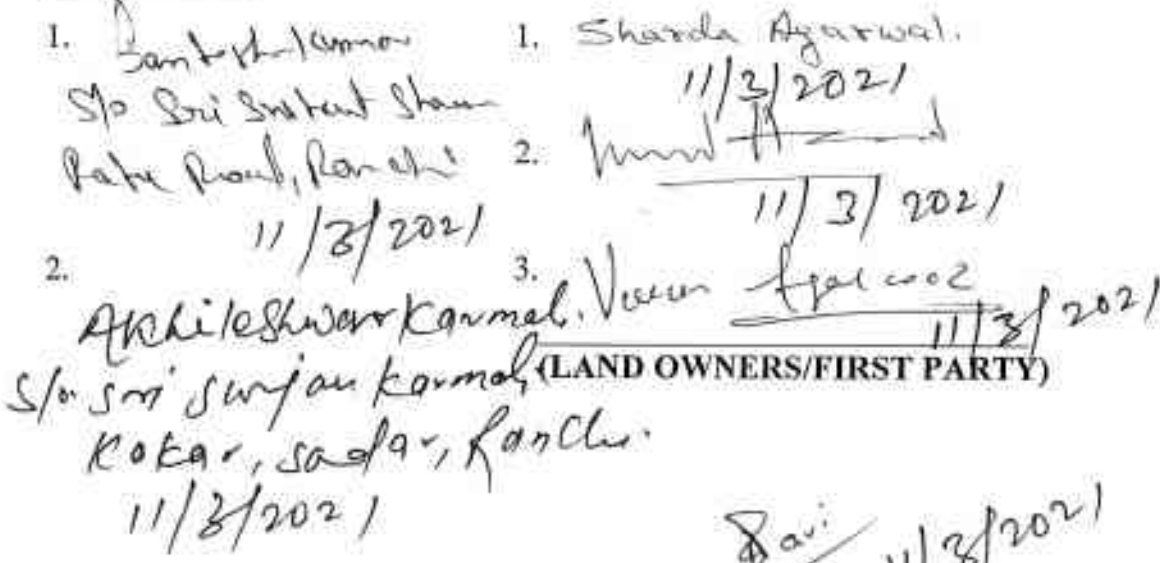 1.
S/o Sri
Road, Ranchi
11/3/2021
2.
Akhileshwar Karmali.
S/o Sri Surjan Karmali
Kokar, Sadar, Ranchi.
11/3/2021
1. Sharda Agarwal.
11/3/2021
2.
11/3/2021
3. Agarwal
11/3/2021
(LAND OWNERS/FIRST PARTY)
Ravi
11/3/2021